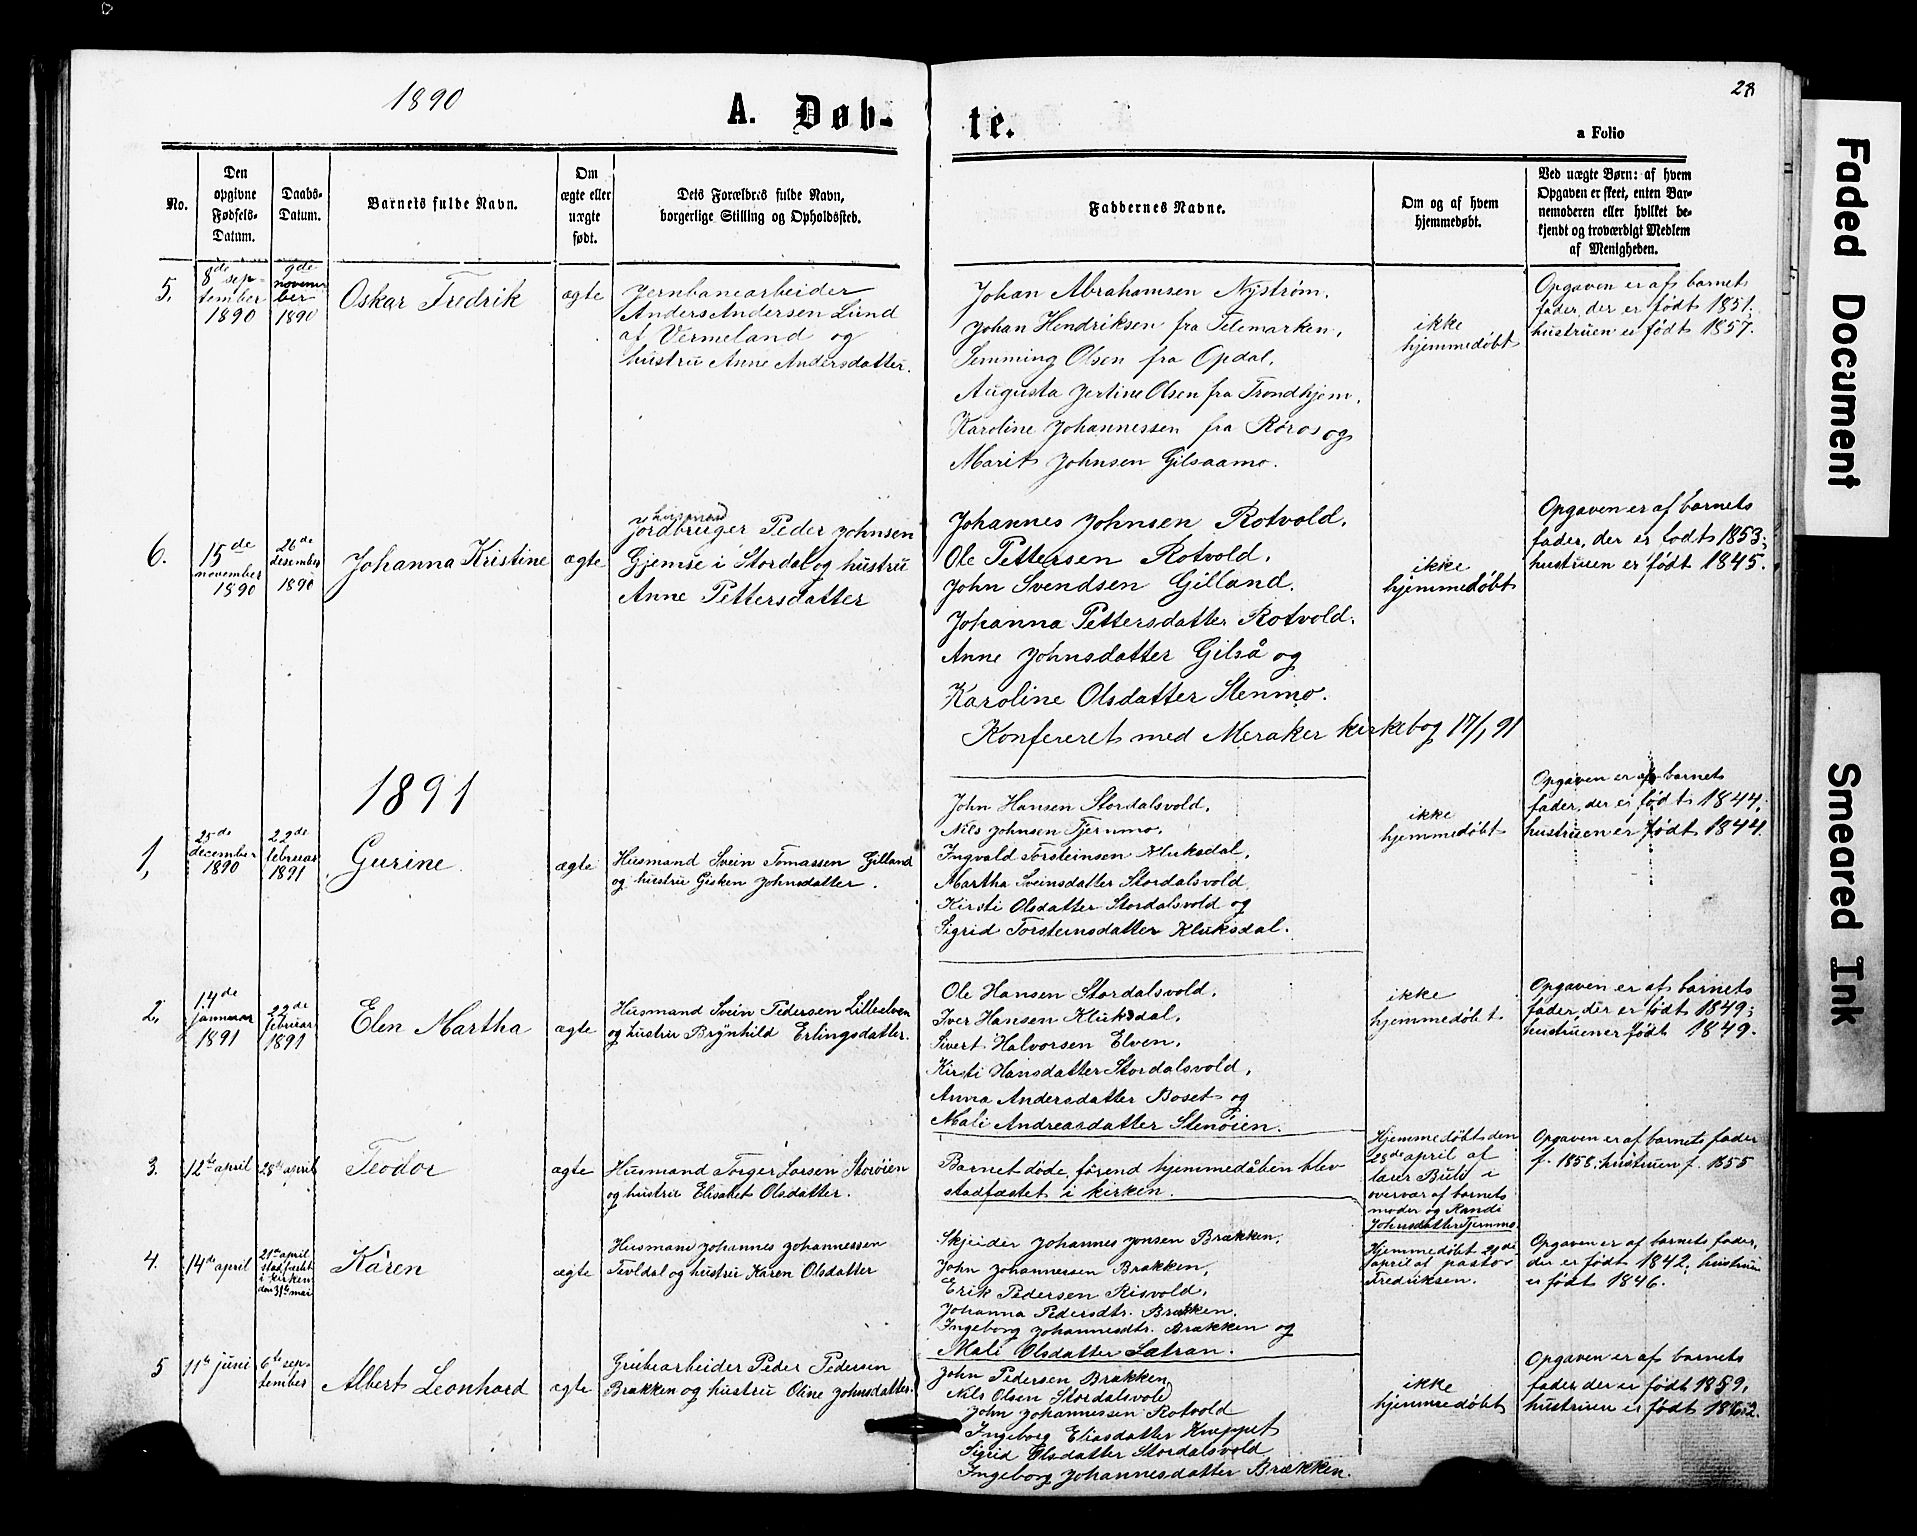 1890
A. Døb-
te.
28
a Folio
No.
Den
opgivne
Fødsels-
Datum.
Daabs-
Datum.
Barnets fulde Navn.
Om
ægte eller
uægte
født.
Dets Forældres fulde Navn,
borgerlige Stilling og Opholdssted.
Faddernes Navne.
Om og af hvem
hjemmedøbt.
Ved uægte Børn: af hvem
Opgaven er skeet, enten Bar-
nemoderen eller hvilket be-
kjendt og troværdigt Medlem
af Menigheden.
5.
8de sep-
tember
1890
9de
novem
ber
1890
Oskar Fredrik
ægte
Jernbanearbeider
Anders Andersen Lund
af Vermeland og
hustru Anne Andersdatter.
Johan Abrahamsen Nystrøm.
Johan Hendriksen fra Telemarken,
Semming Olsen fra Opdal,
Augusta Jertine Olsen fra Trondhjem,
Karoline Johannessen fra Røros og
Marit Johnsen Gilsaamo.
ikke
hjemmedøbt
Opgaven er af barnets
fader, der er født 1851;
hustruen er født 1857.
6.
15de
november
1890
26de
desember
1890
Johanna Kristine
ægte
husmand
Jordbruger Peder Johnsen
Gjemse i Stordal og hustru
Anne Pettersdatter
Johannes Johnsen Rotvold.
Ole Pettersen Rotvold.
John Svendsen Gilland.
Johanna Pettersdatter Rotvold.
Anne Johnsdatter Gilså og
Karoline Olsdatter Stenmo.
Konfereret med Meraker kirkebog 17/1 91
ikke
hjemmedøbt
Opgaven er af barnets
fader, der er født 1853;
hustruen er født 1845.
1891
1,
25de
december
1890
22de
februar
1891
Gurine
ægte
Husmand Svein Tomassen Gilland
og hustru Gisken Johnsdatter.
John Hansen Stordalsvold,
Nils Johnsen Tjernmo,
Ingvald Torsteinsen Kluksdal,
Martha Sveinsdatter Stordalsvold,
Kirsti Olsdatter Stordalsvold og
Sigrid Torsteinsdatter Kluksdal.
ikke
hjemmedøbt
Opgaven er af barnets
fader, der er født 1844;
hustruen er født 1844.
2,
14de
januar
1891
22de
februar
1891
Elen Martha
ægte
Husmand Svein Pedersen Lilleelven
og hustru Brynhild Erlingsdatter.
Ole Hansen Stordalsvold,
Iver Hansen Kluksdal,
Sivert Halvorsen Elven,
Kirsti Hansdatter Stordalsvold,
Anna Andersdatter Boset og
Mali Andreasdatter Stenøien.
ikke
hjemmedøbt
Opgaven er af barnets
fader, der er født 1849;
hustruen er født 1849.
3.
12te april
28de april
Teodor
ægte
Husmand Torger Larsen Storøien
og hustru Elisabet Olsdatter.
Barnet døde, førend hjemmedåben blev
stadfæstet i kirken.
Hjemmedøbt den
28de april af
lærer Buld i
overvær af barnets
moder og Randi
Johnsdatter Tjernmo
Opgaven er af barnets fader
f. 1858; hustruen f. 1855
4.
14de april
21de april
stadfæstet
i kirken
den 31te mai
Karen
ægte
Husmand Johannes Johannessen
Tevldal og hustru Karen Olsdatter
Skjeider Johannes Jonsen Brækken,
John Johannessen Brækken,
Erik Pedersen Risvold,
Johanna Pedersdtr. Brækken,
Ingeborg Johannesdtr. Brækken og
Mali Olsdatter Lætran.
Hjemmedøbt 21de
april af pastor
Fredriksen.
Opgaven er af barnets fader,
der er født 1842; hustruen
er født 1846.
5
11te juni
6te sep-
tember
Albert Leonhard
ægte
Grubearbeider Peder Pedersen
Brækken og hustru Oline Johnsdatter.
John Pedersen Brækken
Nils Olsen Stordalsvold
John Johannessen Rotvold
Ingeborg Eliasdatter Kneppet
Sigrid Olsdatter Stordalsvold
Ingeborg Johannesdatter Brækken.
ikke
hjemmedøbt
Opgaven er af barnets
fader, der er født 1859,
hustruen er født
Faded Document
Smeared Ink